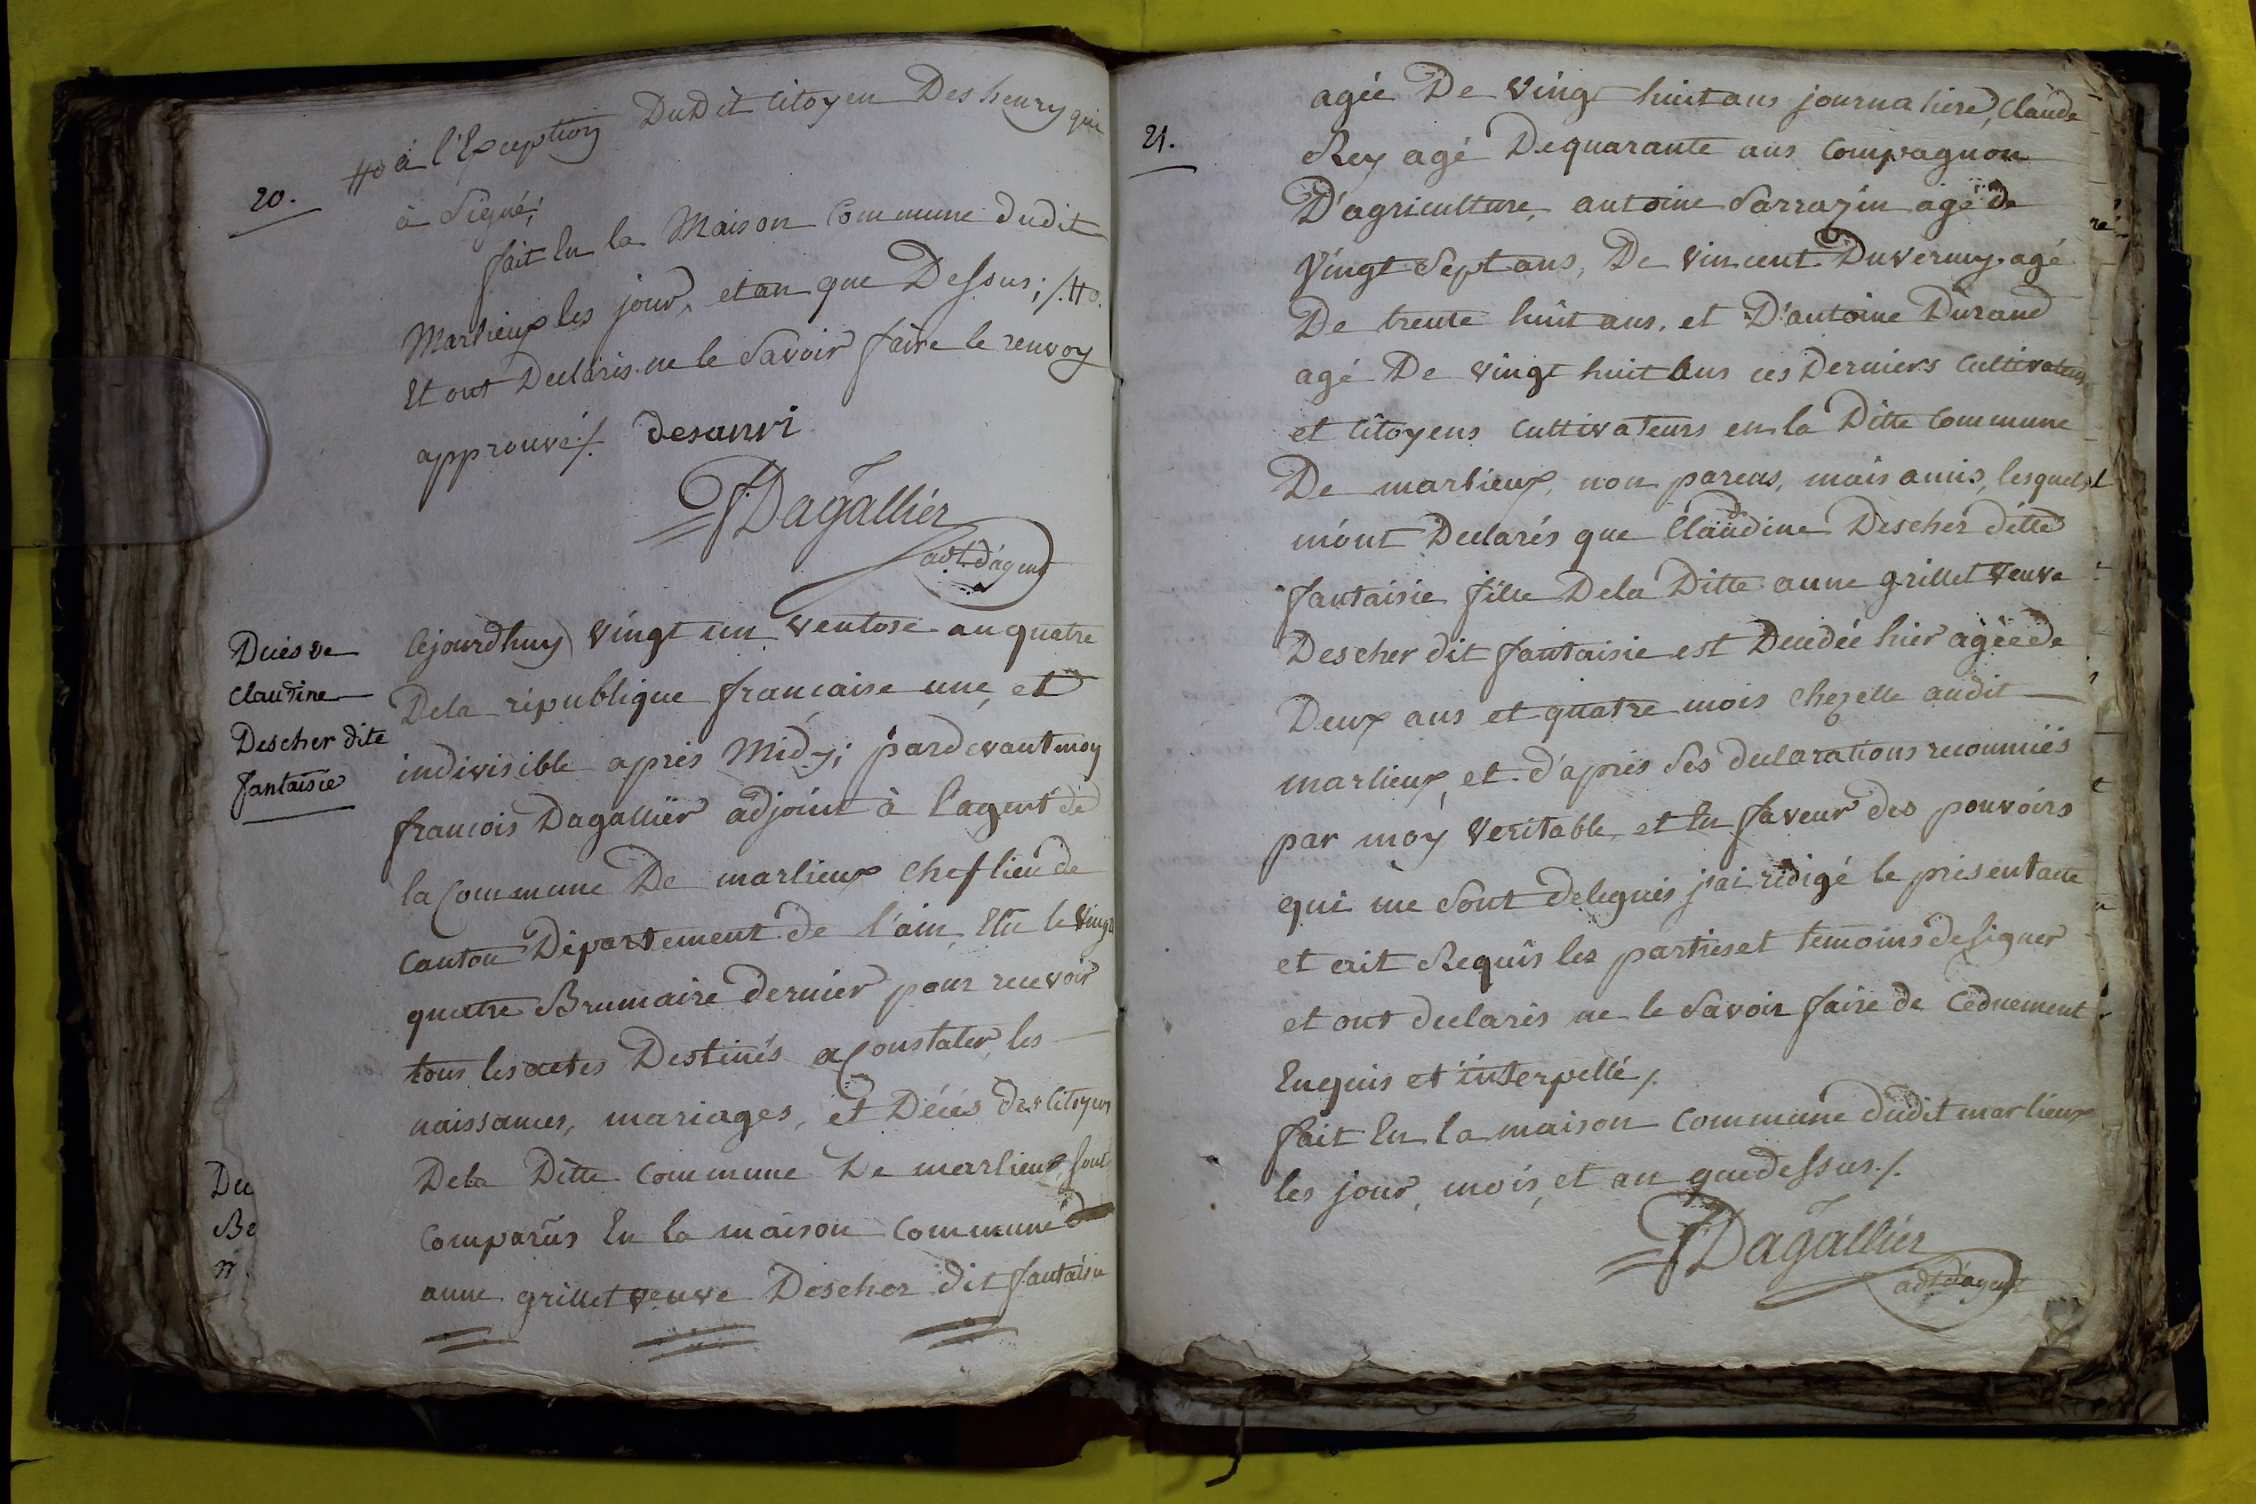 20.
#o à l'Exception DuDit Citoyen Deshenry qui
à Signé;
fait En la Maison Commune dudit
Marlieux les jour, et an que Dessus; /. #o.
Et ont Declarés ne le Savoir faire le renvoy
approuvé /. desanvi
FDagallier
adt. d'agent
Décés de
Claudine
Descher dite
fantaisie
Cejourdhuy vingt un ventose an quatre
De la république francaise une, et
indivisible aprés Midy; pardevant moy
francois Dagallier adjoint à l'agent de
la Commune De marlieux Chef lieu de
Canton Département de l'ain, Elu le vingt
quatre Brumaire dernier pour recevoir
tous les actes Destinés a Constater les
naissances, mariages, et Décés des Citoyens
De la Ditte Commune De marlieux, sont
Comparus En la maison Commune
anne grillet veuve Descher dit fantaisie
De
Be
21.
agée De vingt huit ans journaliere, Claude
Rey agé De quarante ans Compagnon
D'agriculture, antoine Sarrazin agé de
vingt Sept ans, De vincent Duverny agé
De trente huit ans, et D'antoine Durand
agé De vingt huit ans ces Derniers Cultivateurs
et Citoyens Cultivateurs en la Ditte Commune
De marlieux, non parens, mais amis, lesquels
m'ont Declarés que Claudine Descher ditte
fantaisie fille De la Ditte anne grillet veuve
Descher dit fantaisie est Decedée hier agée de
Deux ans et quatre mois chez elle audit
marlieux, et d'aprés Ses declarations reconnuës
par moy Veritable, et En faveur des pouvoirs
qui me Sont delegués j'ai rédigé le présent acte
et ait Requis les parties et temoins de Signer
et ont declarés ne le Savoir faire de Cedument
Enquis et interpellé /.
fait En la maison Commune dudit marlieux
les jour, mois, et an que dessus. /.
FDagallier
adt. d'agent